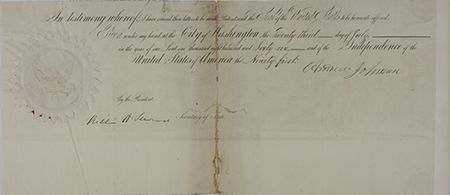 In testimony whereof I have caused these letters to be made Patent and the Seal of the United States to be hereunto affixed.
Given under my hand at the City of Washington the Twenty third day of July
in the year of our Lord one thousand eight hundred and Sixty six and of the Independence of the
United States of America the Ninety first.
Andrew Johnson
By the President
Secretary of State